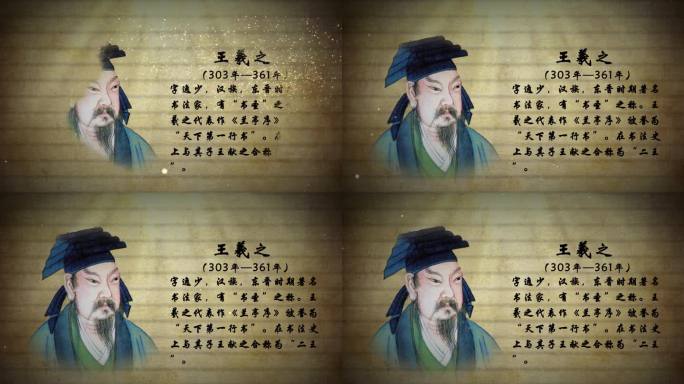 王羲之
(303年—361年
字逸少，汉族，东晋时期
书法家，有“书圣”之
羲之代表作《兰亭序》
“天下第一行书”。在
上与其子王献之合称
”。
王羲之
(303年—361年)
字逸少，汉族，东晋时期著名
书法家，有“书圣”之称。王
羲之代表作《兰亭序》被誉为
“天下第一行书”。在书法史
上与其子王献之合称为“二王
”。
王羲之
(303年—361年)
字逸少，汉族，东晋时期著名
书法家，有“书圣”之称。王
羲之代表作《兰亭序》被誉为
“天下第一行书”。在书法史
上与其子王献之合称为“二王
”。
王羲之
(303年—361年)
字逸少，汉族，东晋时期著名
书法家，有“书圣”之称。王
羲之代表作《兰亭序》被誉为
“天下第一行书”。在书法史
上与其子王献之合称为“二王
”。